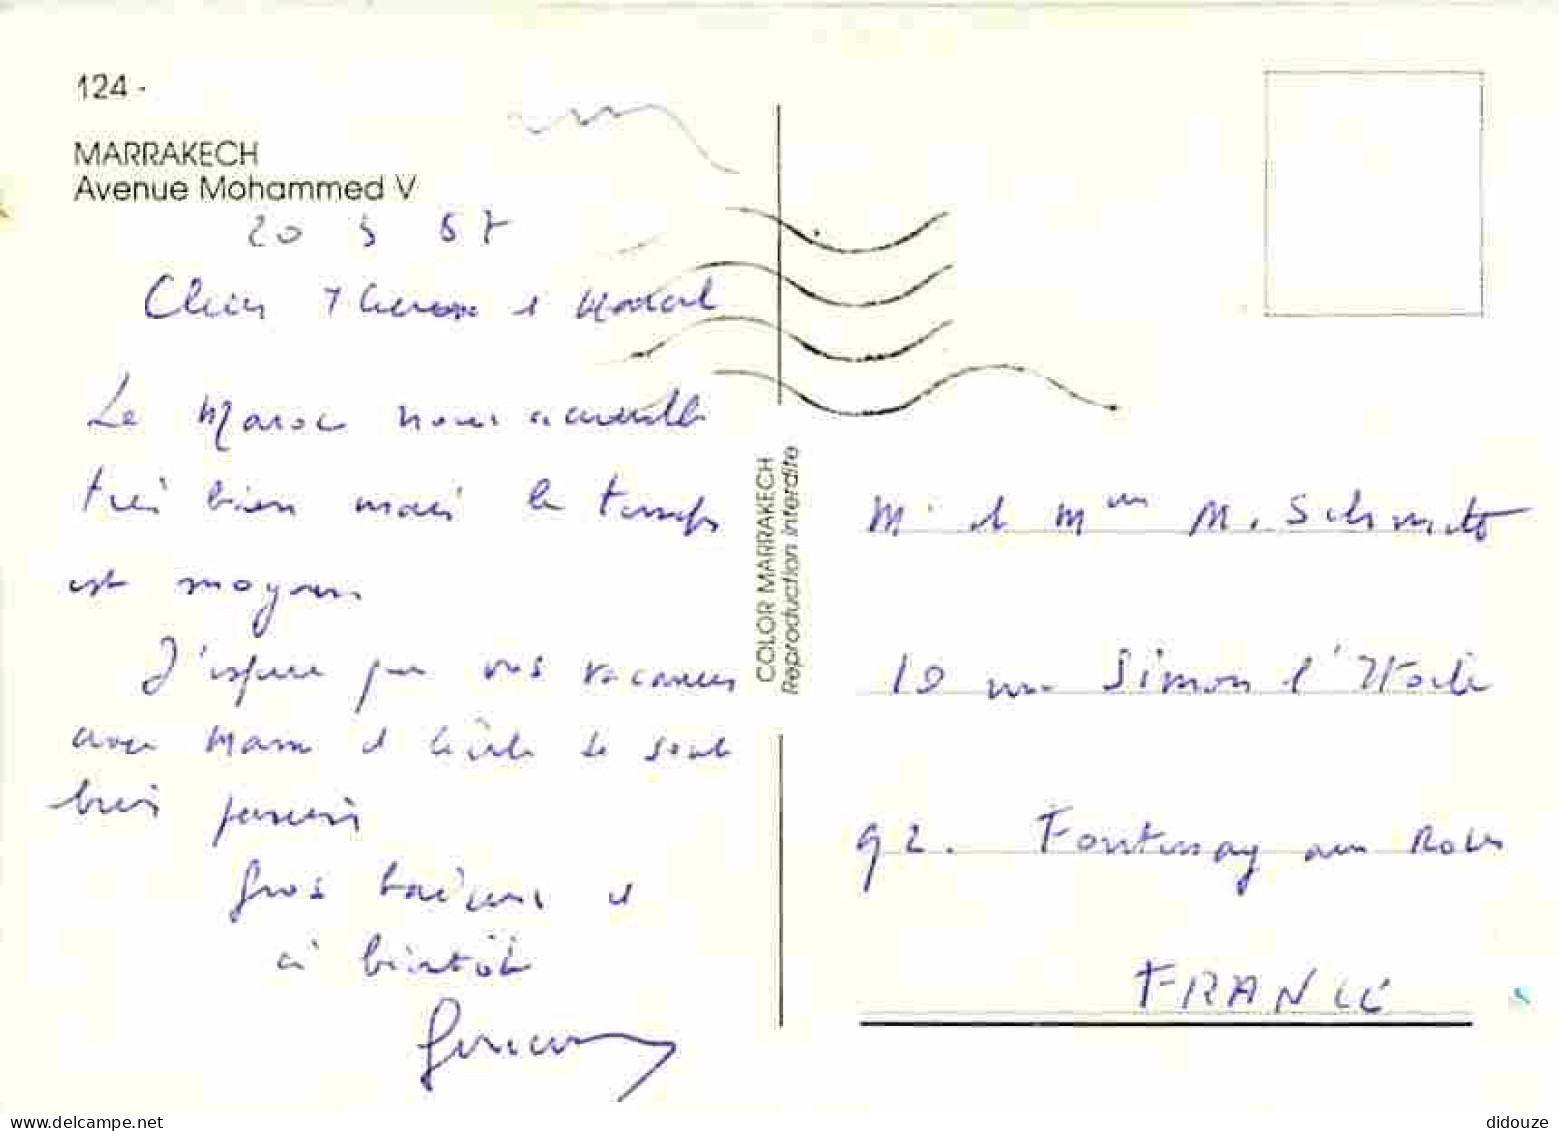 124 -
MARRAKECH
Avenue Mohammed V
20 5 87
Chers Therese et
Le Maroc nous accueille
très bien mais le temps
est moyen
J'espère que vos vacances
avec et se sont
bien passées
Gros baisers et
à bientôt
COLOR MARRAKECH
Reproduction interdite
Mr et Mme M. Schmitt
10 rue Simon l'Etoile
92. Fontenay aux Roses
FRANCE
didouze